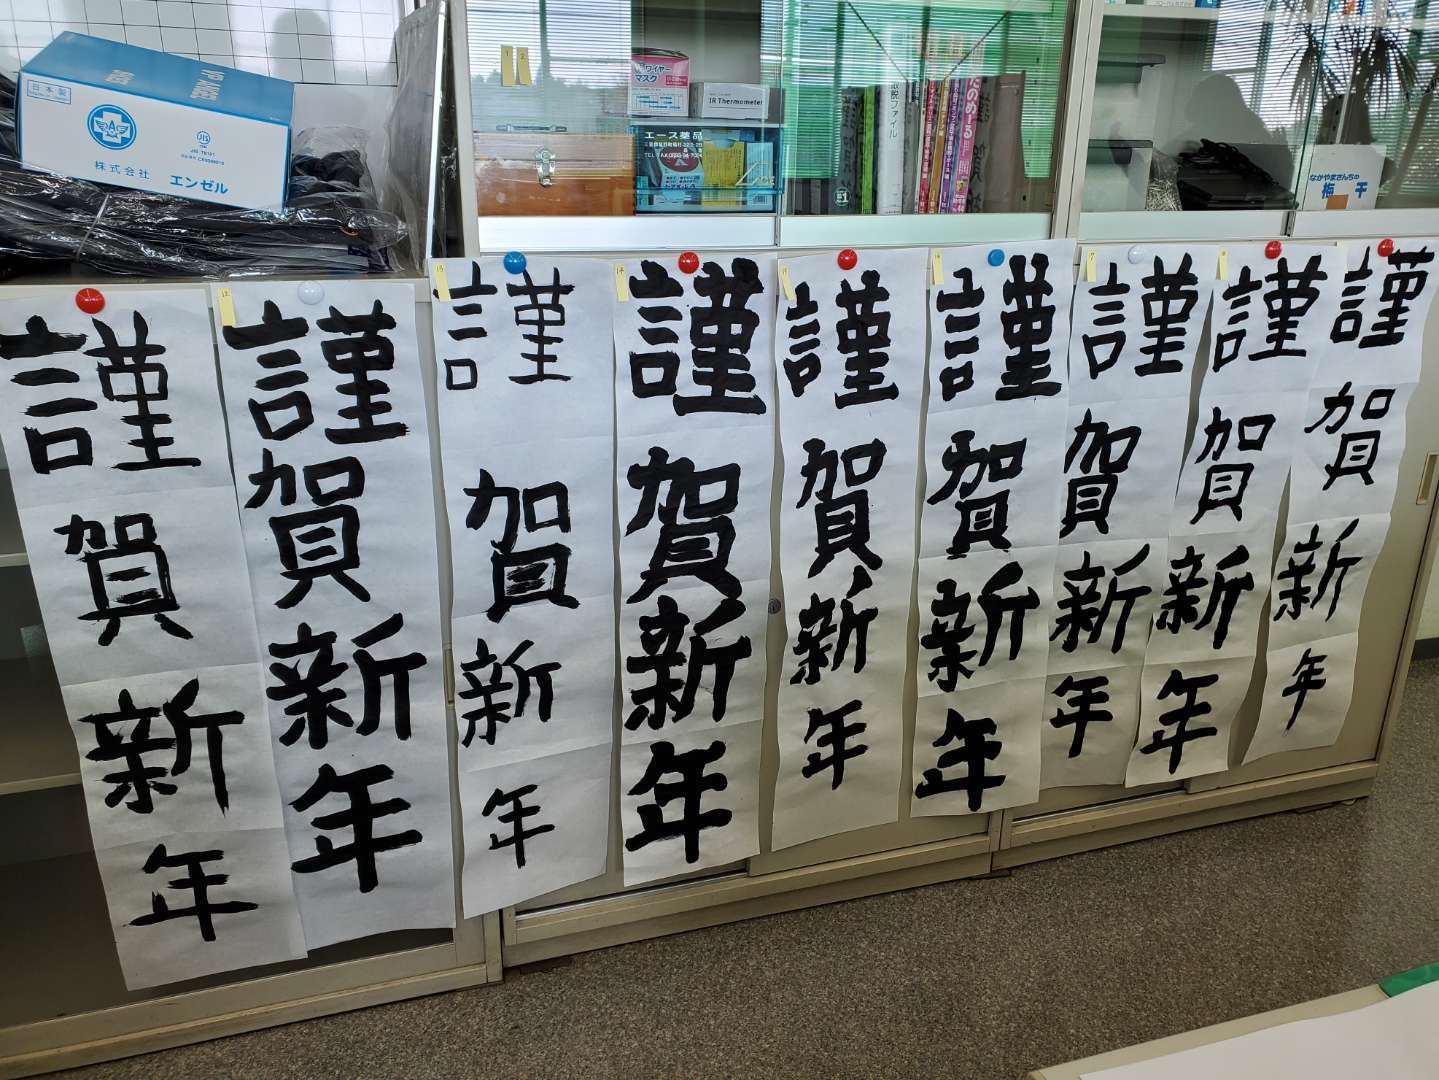 日本製
株式会社 エンゼル
JIS
ワイヤー
マスク
IR Thermometer
エース薬品
取説ファイル
たのめーる
なかやまさんちの
梅干
謹賀新年
謹賀新年
謹賀新年
謹賀新年
謹賀新年
謹賀新年
謹賀新年
謹賀新年
謹賀新年